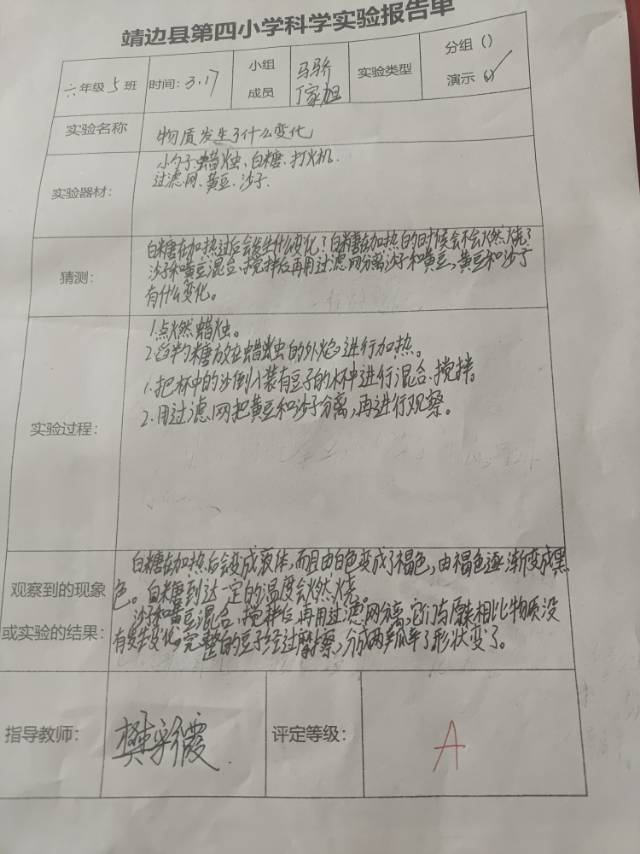 靖边县第四小学科学实验报告单
六年级5班 时间:3.17 小组成员 马骄 丁家旭 实验类型 分组() 演示(√)
实验名称 物质发生了什么变化
实验器材: 小勺子、蜡烛、白糖、打火机、
过滤网、黄豆、沙子.
猜测: 白糖在加热过后会发生什么变化?白糖在加热的时候会不会燃烧?
沙子和黄豆混合、搅拌后再用过滤网分离沙子和黄豆,黄豆和沙子
有什么变化。
实验过程: 1.点燃蜡烛。
2.白糖放在蜡烛的外焰,进行加热。
1.把杯中的沙倒入装有豆子的杯中进行混合、搅拌。
2.用过滤网把黄豆和沙子分离,再进行观察。
观察到的现象
或实验的结果:
白糖在加热后会变成液体,而且由白色变成了褐色,由褐色逐渐变成黑
色。白糖到达一定的温度会燃烧。
沙子和黄豆混合、搅拌后再用过滤网分离,它们与原来相比物质没
有发生变化,完整的豆子经过摩擦,分成两半了形状变了。
指导教师: 樊彩霞 评定等级: A